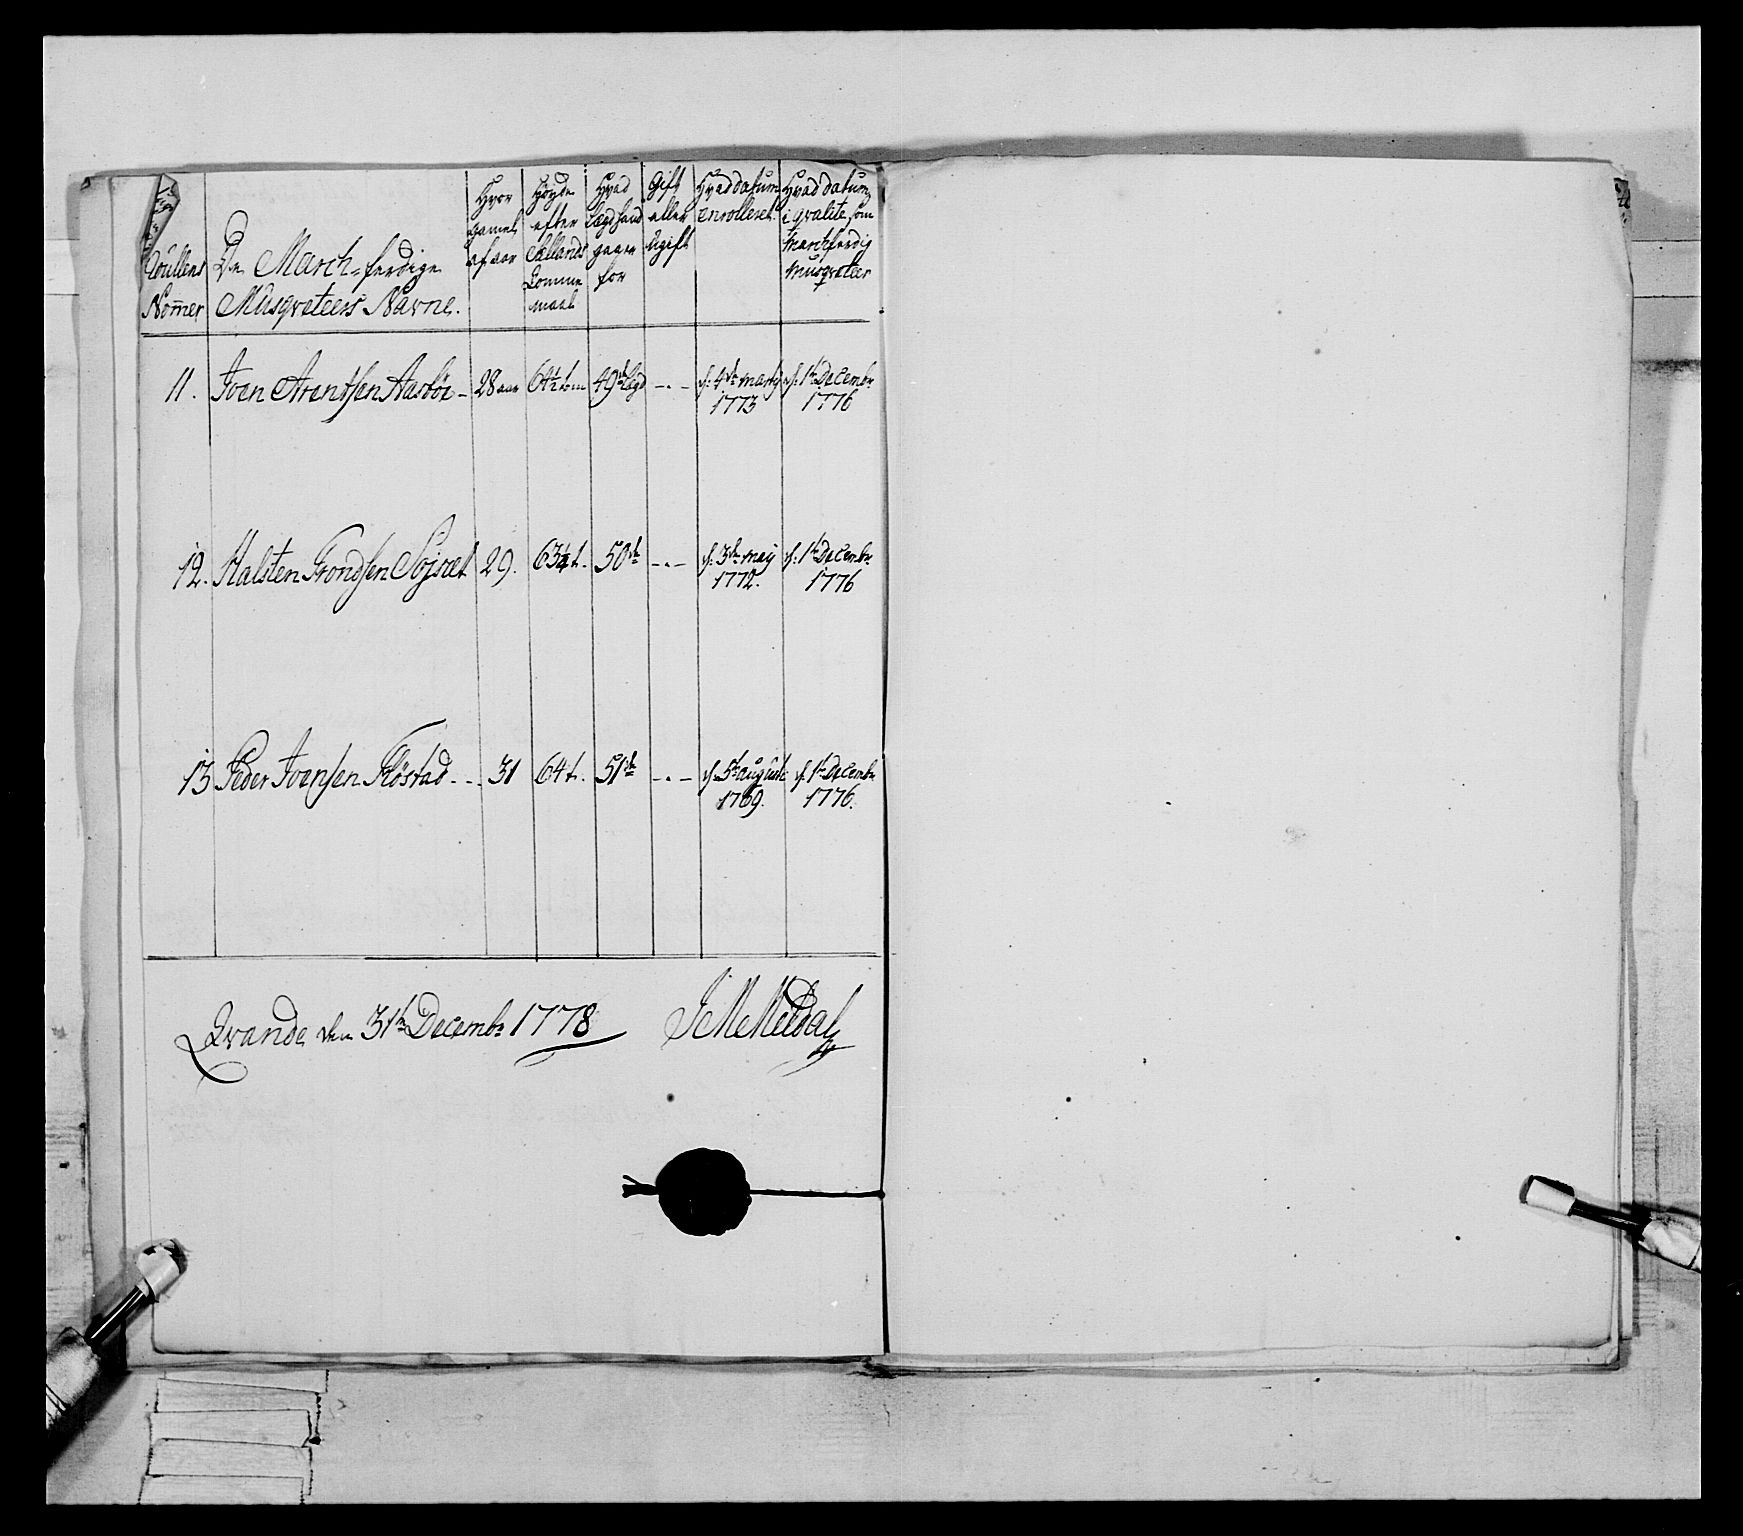 Rullens
Nom̄er
De March-ferdige
Musqveteers Navne.
Hvor
gamel
af aar
Høyde
efter
Sællands
Tomme
maal
Hvad
Lægd hand
gaaer
for
Gift
eller
Ugift
Hvad datum
enrolleret
Hvad datum
i qvalite som
Marchferdig
Musqveteer
11. Iven Arentsen Aasbøe - 28 aar 64½ tom 49de Lægd -.- d: 4de marty 1773 d: 1te Decembr 1776
12. Halsten Trondsen 29. 63¼ t. 50de -.- d: 3de may 1772. d: 1te Decembr 1776
13 Peder Ivensen Fløstad - - 31 64 t. 51de -.- d. 5te august 1769. d. 1te Decembr 1776.
Qvande den 31te Decembr 1778
J M Meldal